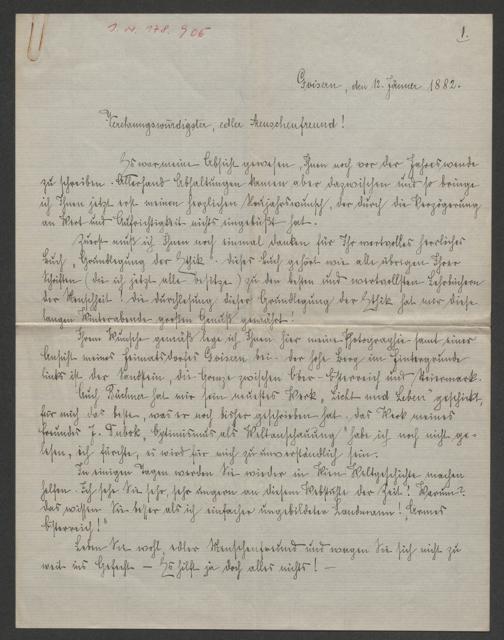 I. N. 178.906
1.
Goisern, den 12. Jänner 1882.
Verehrungswürdigster, edler Menschenfreund!
Es war meine Absicht gewesen, Ihnen noch vor der Jahreswende
zu schreiben. Allerhand Abhaltungen kamen aber dazwischen und so bringe
ich Ihnen jetzt erst meinen herzlichen Neujahrswunsch, der durch die Verzögerung
an Wert und Aufrichtigkeit nichts eingebüßt hat.
Zuerst muß ich Ihnen noch einmal danken für Ihr wertvolles herrliches
Buch „Grundlegung der Ethik". Dieses Buch gehört wie alle übrigen Ihrer
Schriften (die ich jetzt alle besitze) zu den besten und wertvollsten Lehrbüchern
der Menschheit! Die Durchlesung dieser Grundlegung der Ethik hat mir diese
langen Winterabende großen Genuß gewährt!
Ihrem Wunsche gemäß lege ich Ihnen hier meine Photographie samt einer
Ansicht meines Heimatsdorfes Goisern bei. Der hohe Berg im Hintergrunde
links ist der Sandling, die Grenze zwischen Ober-Österreich und Steiermark.
Auch Büchner hat mir sein neuestes Werk „Licht und Leben" geschickt,
für mich das beste, was er noch bisher geschrieben hat. Das Werk meines
Freundes J. Duboc, „Optimismus als Weltanschauung" habe ich noch nicht ge-
lesen, ich fürchte, es wird für mich zu unverständlich sein.
In einigen Tagen werden Sie wieder in Wien Weltgeschichte machen
helfen. Ich sehe Sie sehr, sehr ungern an diesem Webstuhle der Zeit! Warum?
Das wissen Sie besser als ich einfacher ungebildeter Landmann! Armes
Österreich!"
Leben Sie wohl, edler Menschenfreund und wagen Sie sich nicht zu
weit ins Gefecht — Es hilft ja doch alles nichts! —